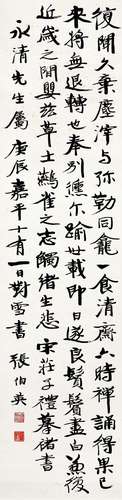 復聞久棄塵滓与弥勒同龕一食清齋六時禪誦得果已
來將無退轉也奉別倏尔踰卅載即日遂良鬚鬢盡白兼復
近歲之間嬰茲草土鷰雀之志觸緒生悲 宋莊子禮摹褚書
永清先生屬 庚辰嘉平十有一日對雪書 張伯英